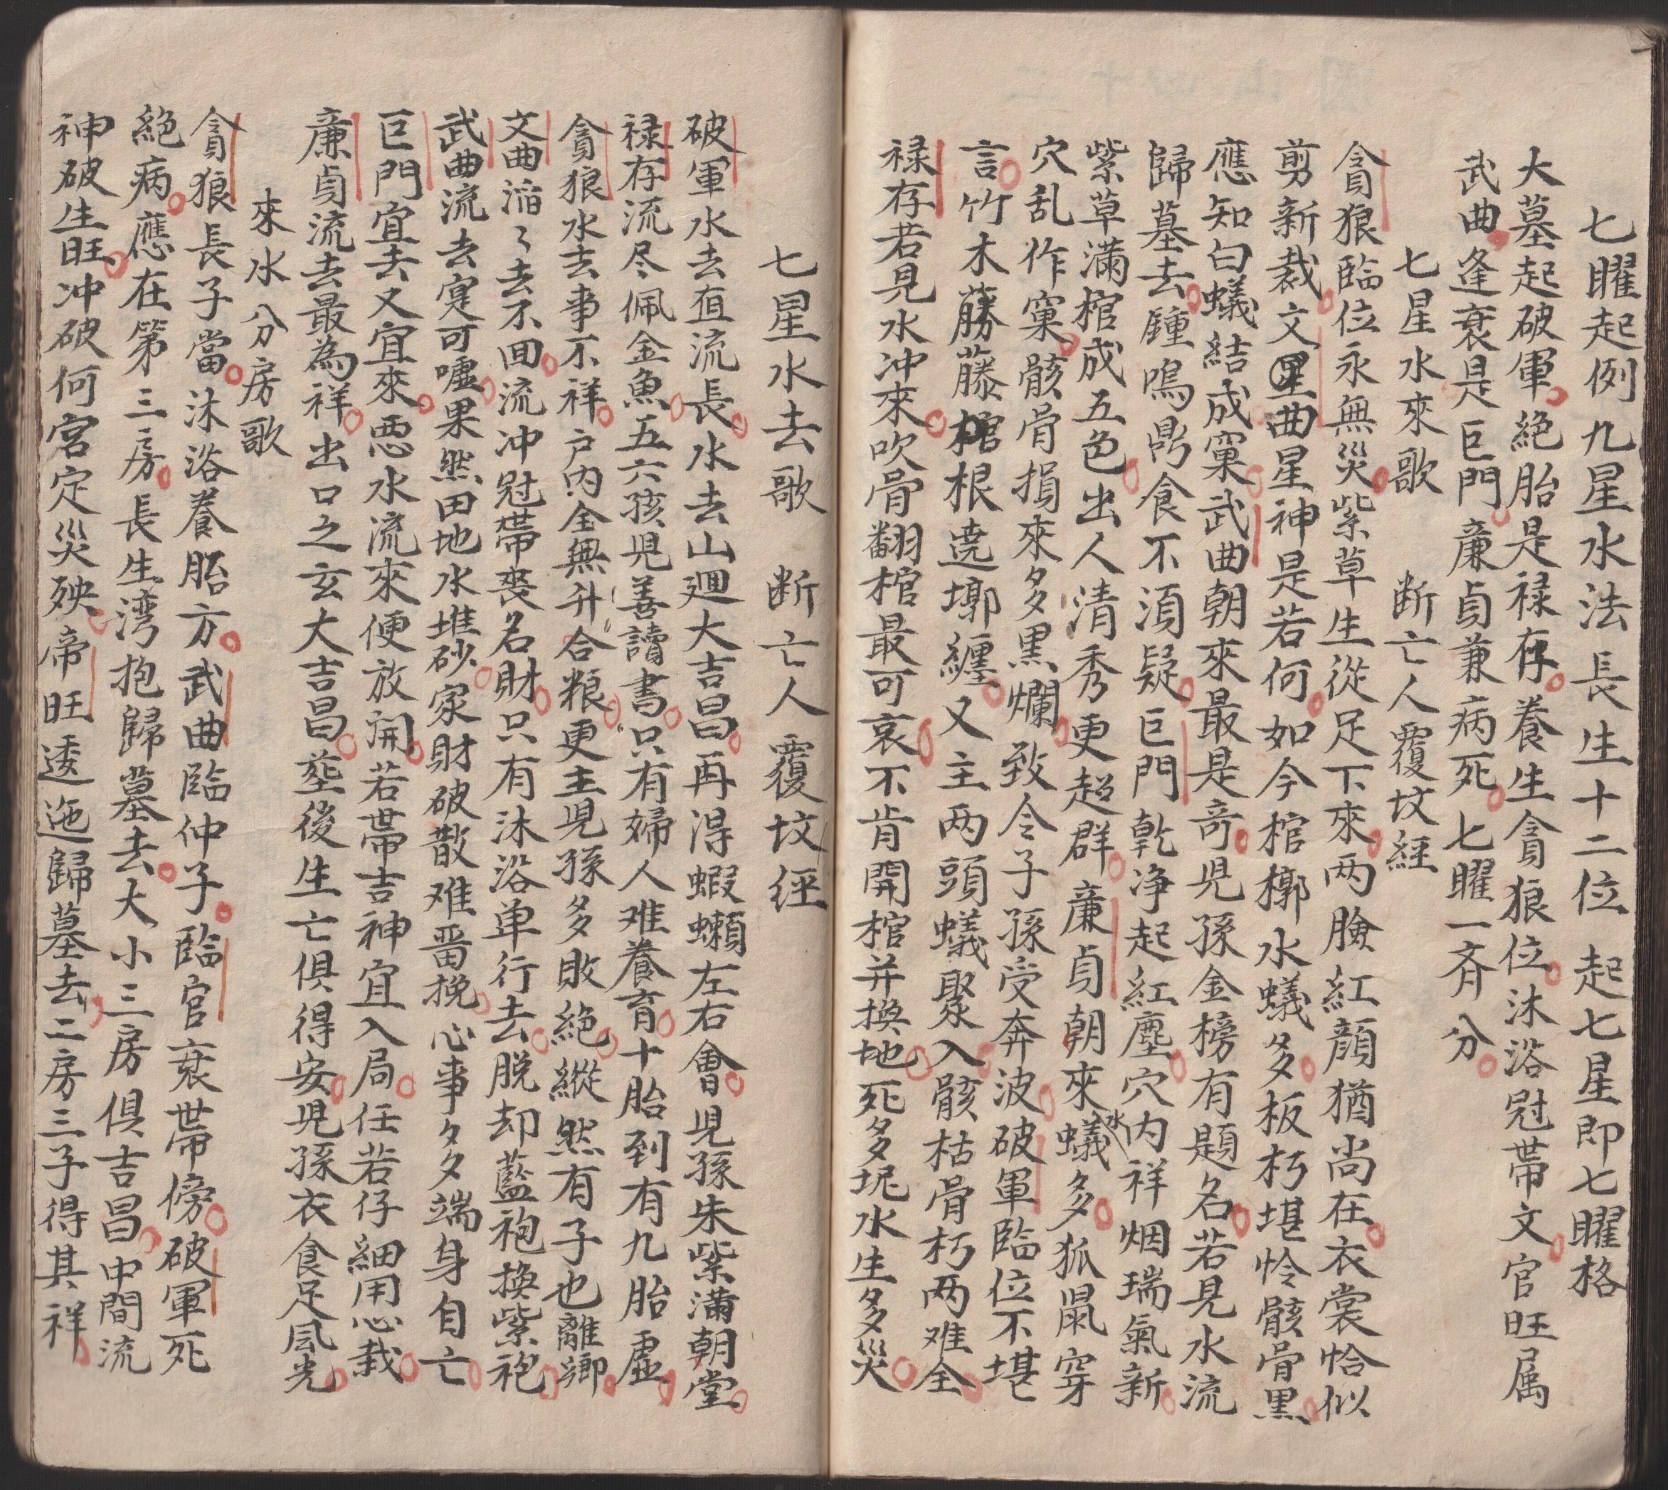 七曜起例九星水法長生十二位　起七星即七曜格
大墓起破軍絕胎是禄存養生貪狼位沐浴冠帶文官旺属
武曲逢衰是巨門廉貞兼病死七曜一齐分
七星水來歌　断亡人覆坟經
貪狼臨位永無災紫草生從足下來两臉紅顔猶尚在衣裳恰似
剪新裁文星曲星神是若何如今棺槨水蟻多板朽堪怜骸骨黑
應知白蟻結成窠武曲朝來最是奇児孫金榜有題名若見水流
歸墓去鐘鳴鼎食不須疑巨門乾净起紅塵穴内祥烟瑞氣新
紫草滿棺成五色出人清秀更超群廉貞朝來水蟻多狐鼠穿
穴乱作窠骸骨損來多黑爛致令子孫受奔波破軍臨位不堪
言竹木藤藤棺根遶墎纏又主两頭蟻聚入骸枯骨朽两难全
禄存若見水冲來吹骨翻棺最可哀不肯開棺并換地死多坭水生多災
七星水去歌　断亡人覆坟經
破軍水去直流長水去山廻大吉昌再得蝦䗫左右會児孫朱紫滿朝堂
禄存流尽佩金魚五六孩児善讀書只有婦人难養育十胎到有九胎虛
貪狼水去事不祥户内全無升合粮更主児孫多敗絕縱然有子也離鄉
文曲滔々去不囬流冲冠帶丧名財只有沐浴单行去脱却藍袍換紫袍
武曲流去寔可噓果然田地水堆砂家財破散难畱挽心事多端身自亡
巨門宜去又宜來悪水流來便放開若帶吉神宜入局任若仔細用心栽
廉貞流去最為祥出口之玄大吉昌塟後生亡俱得安児孫衣食足風光
來水分房歌
貪狼長子當沐浴養胎方武曲臨仲子臨官衰帶傍破軍死
絕病應在第三房長生湾抱歸墓去大小三房俱吉昌中間流
神破生旺冲破何宮定災殃帝旺逶迤歸墓去二房三子得其祥